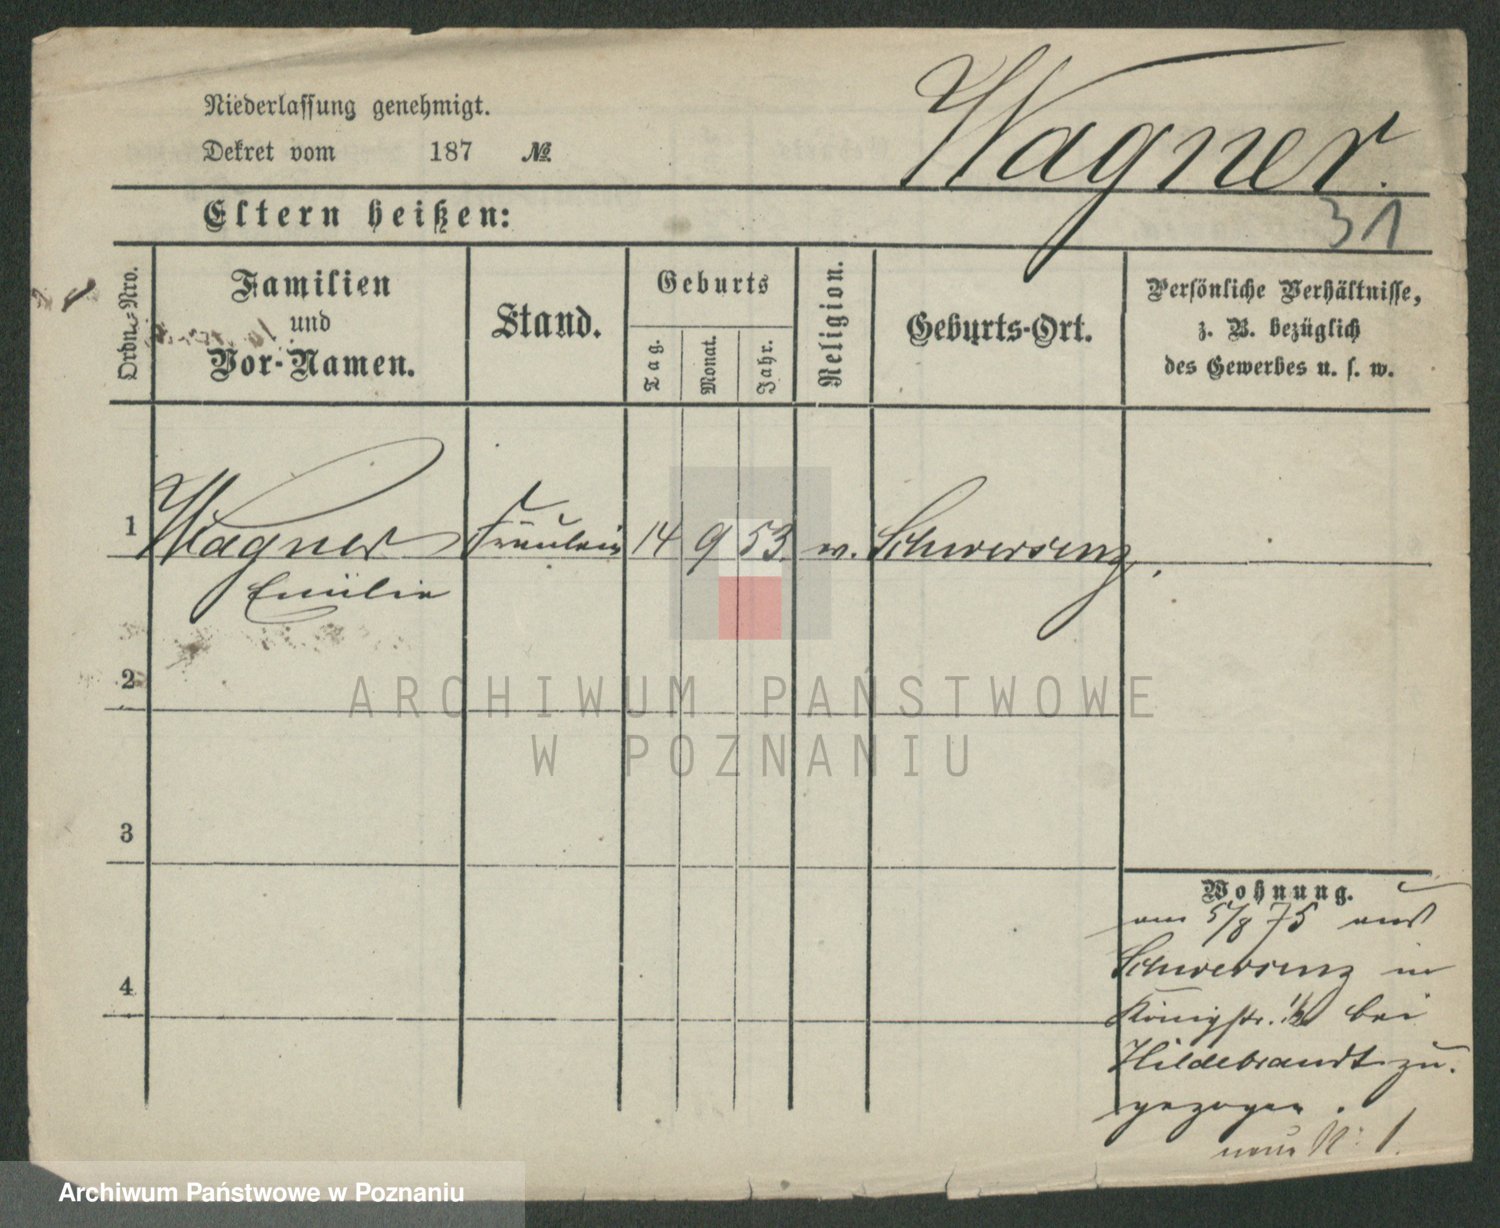 Wagner.
Niederlassung genehmigt.
Dekret vom 187 №
31
Eltern heißen:
Ordn.-Nro.
Familien
und
Vor-Namen.
Stand.
Geburts
Tag.
Monat.
Jahr.
Religion.
Geburts-Ort.
Persönliche Verhältnisse,
z. B. bezüglich
des Gewerbes u. s. w.
1 Wagner Fräulein 14 9 53. Schwersenz,
Emilie
2
ARCHIWUM PAŃSTWOWE
W POZNANIU
3
4
Wohnung.
am 5/8 75 aus
Schwersenz in
Königstr. bei
Hildebrandt zu-
gezogen.
neue N: 1.
Archiwum Państwowe w Poznaniu